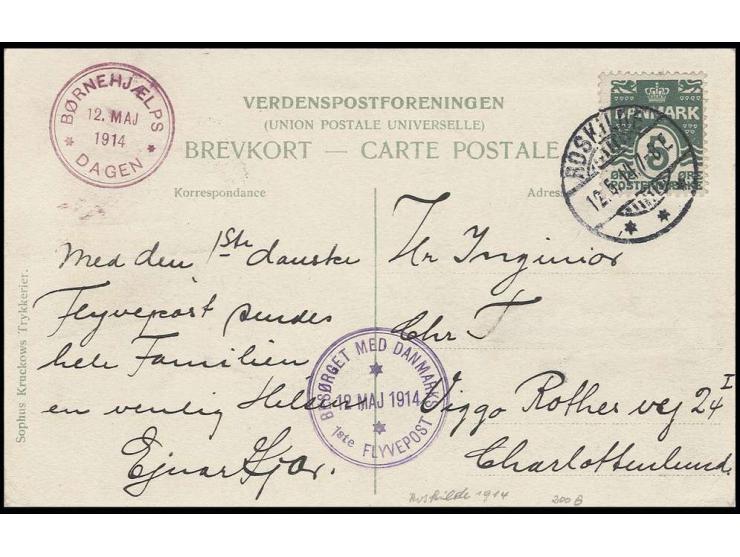 BØRNEHJÆLPS
12. MAJ
1914
DAGEN
VERDENSPOSTFORENINGEN
(UNION POSTALE UNIVERSELLE)
BREVKORT — CARTE POSTALE
Korrespondance
Adres
DANMARK
5
ØRE ØRE
POSTFRIMÆRKE
ROSKILDE
12.5.14
Med den 1ste danske
Flyvepost sendes
hele Familien
en venlig Hilsen
Ejnar Kjær.
Hr Inginiør
Chr
Viggo Rothes vej 24 I
Charlottenlund.
BESØRGET MED DANMARKS
12 MAJ 1914
1ste FLYVEPOST
Sophus Kruckows Trykkerier.
Roskilde 1914
200 B